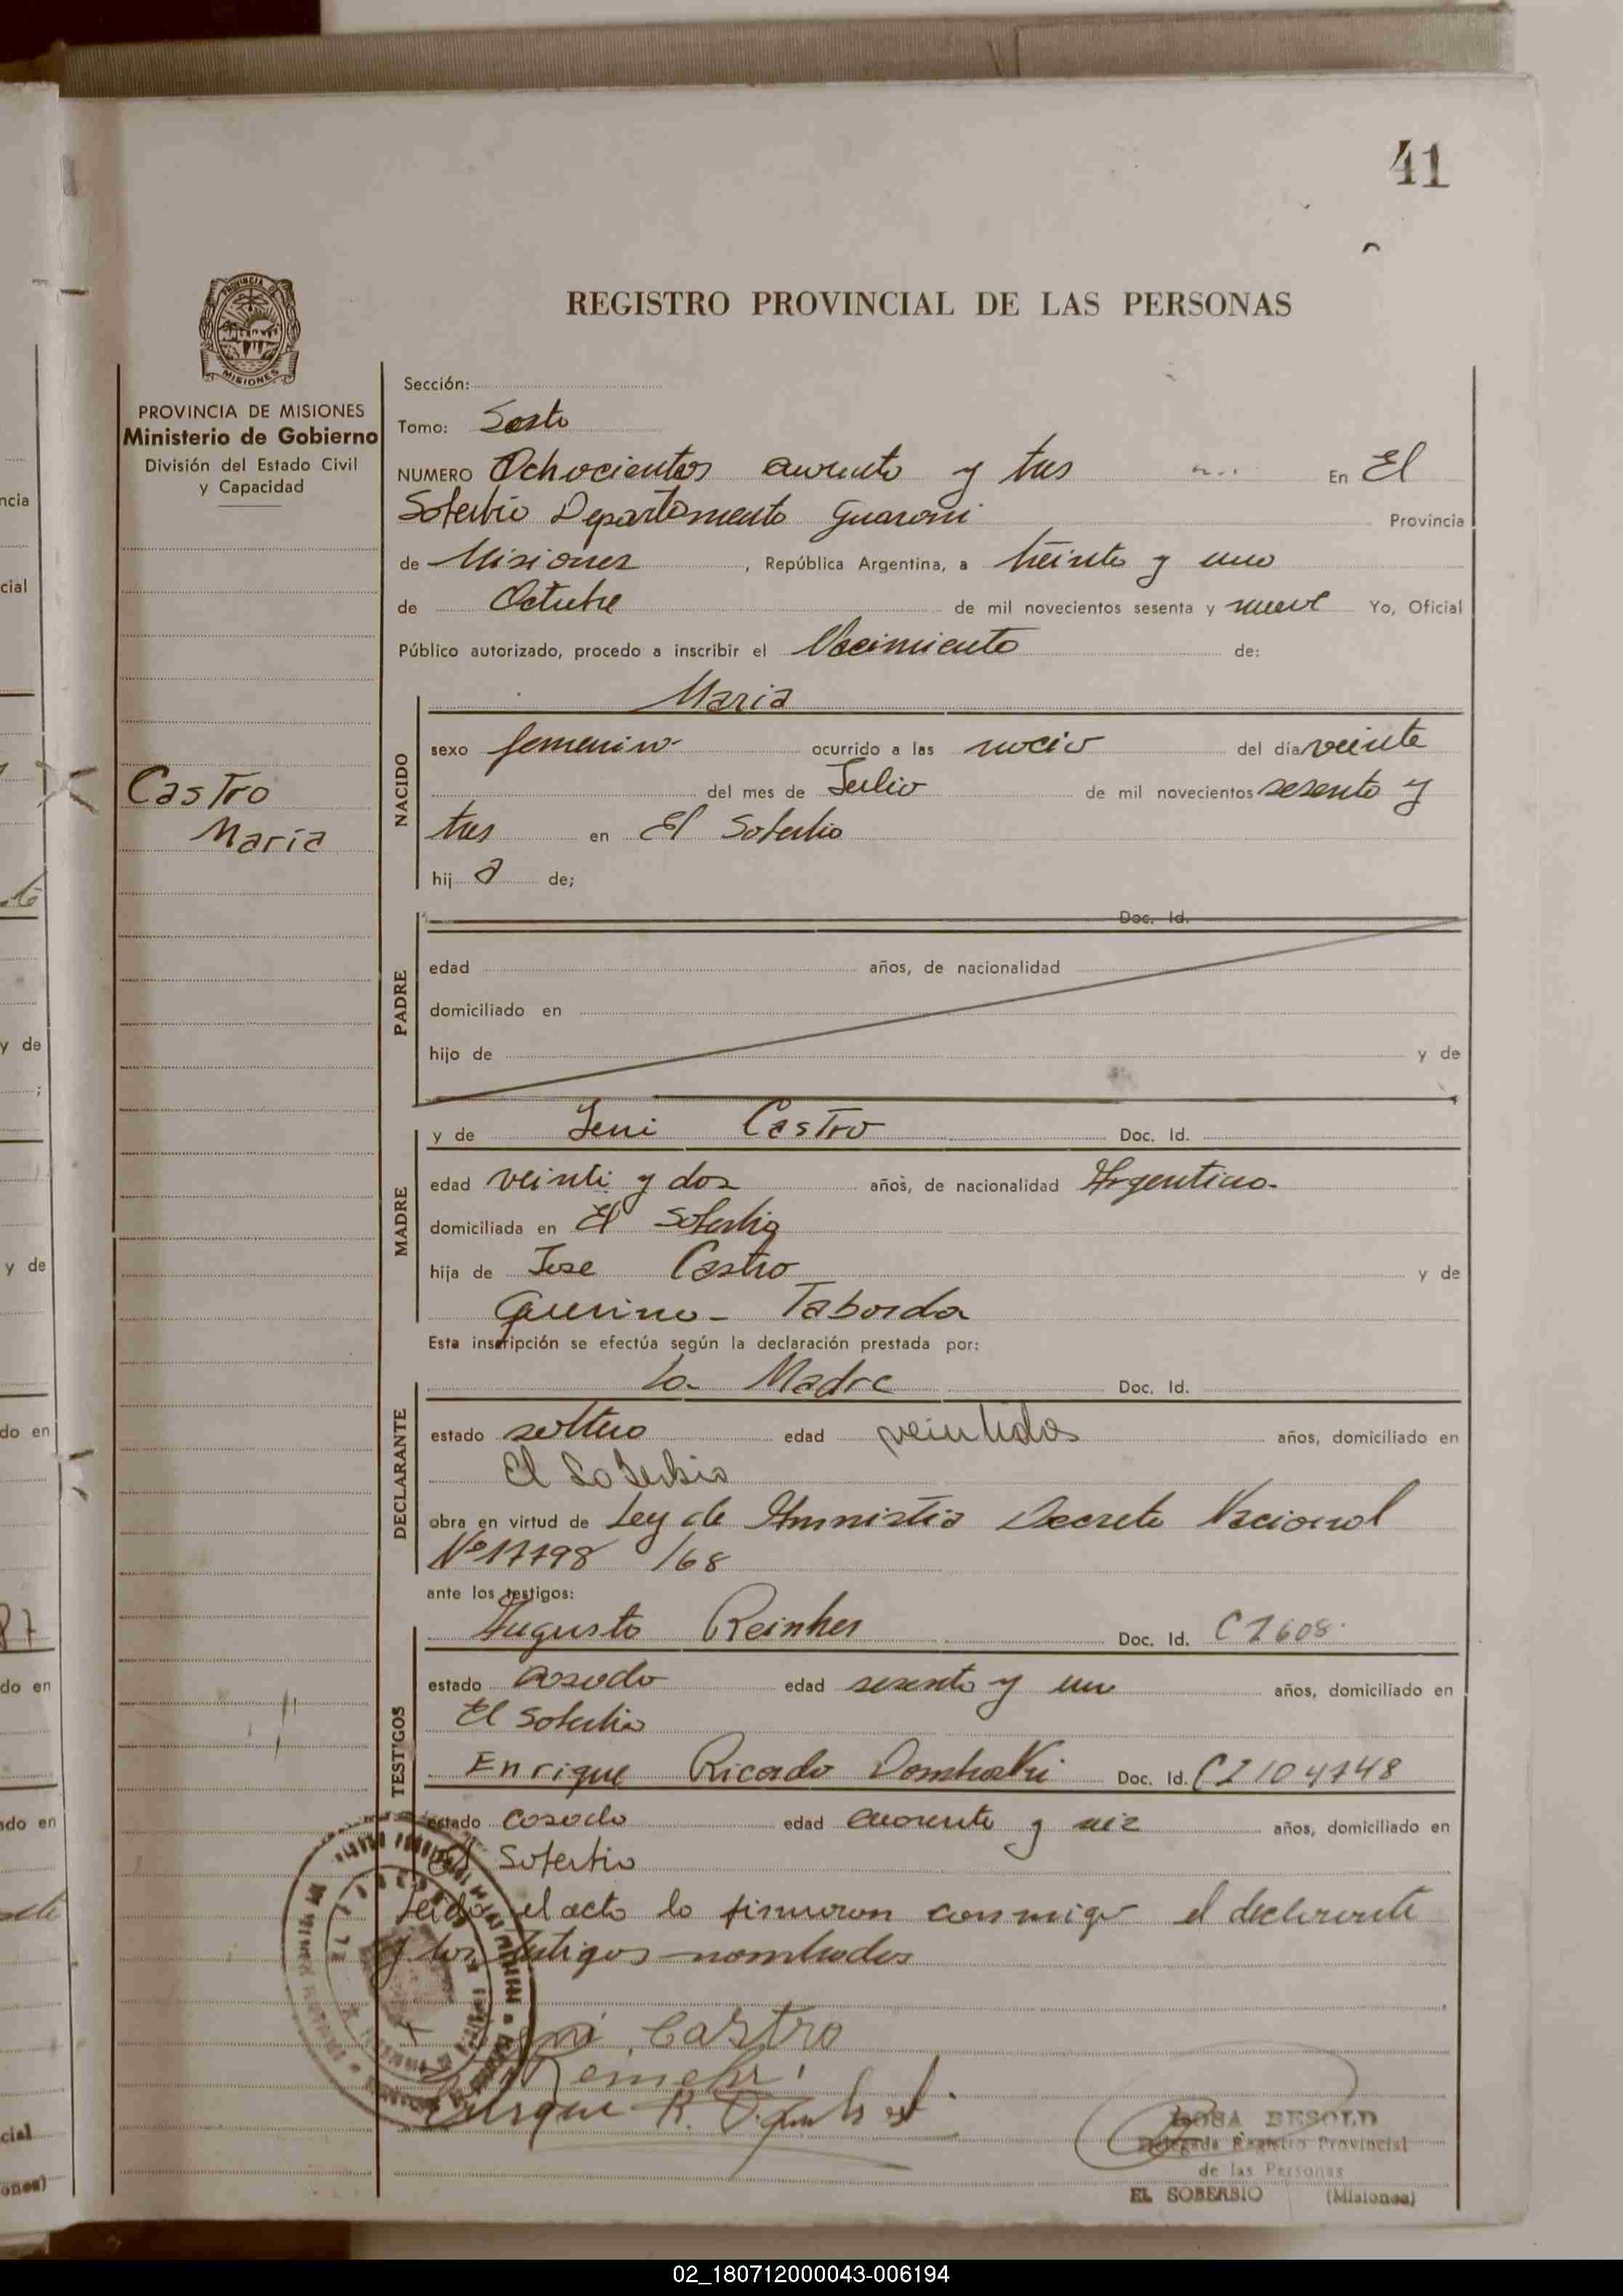 41
REGISTRO PROVINCIAL DE LAS PERSONAS
PROVINCIA DE MISIONES
PROVINCIA DE MISIONES
Ministerio de Gobierno
División del Estado Civil
y Capacidad
Castro
Maria
Sección:
Tomo: Sexto
NUMERO Ochocientos cuarenta y tres En El
Soberbio Departamento Guarani Provincia
de Misiones, República Argentina, a treinta y uno
de Octubre de mil novecientos sesenta y nueve Yo, Oficial
Público autorizado, procedo a inscribir el Nacimiento de:
NACIDO
Maria
sexo femenino ocurrido a las del día veinte
del mes de Julio de mil novecientos sesenta y
tres en El Soberbio
hij a de;
PADRE
Doc. Id.
edad años, de nacionalidad
domiciliado en
hijo de y de
MADRE
y de Castro Doc. Id.
edad veinti y dos años, de nacionalidad Argentina.
domiciliada en El Soberbio
hija de Jose Castro y de
Taborda
Esta inscripción se efectúa según la declaración prestada por:
DECLARANTE
La Madre Doc. Id.
estado soltera edad veintidos años, domiciliado en
El Soberbio
obra en virtud de Ley de Amnistia Decreto Nacional
/68
ante los testigos:
TESTIGOS
Augusto Reinher Doc. Id.
estado casado edad sesenta y uno años, domiciliado en
El Soberbio
Enrique Ricardo Doc. Id.
estado casado edad cuarenta y seis años, domiciliado en
El Soberbio
Leido el acto lo firmaron conmigo el declarante
y los testigos nombrados
Castro
ROSA BESOLD
Delegada Registro Provincial
de las Personas
EL SOBERBIO (Misiones)
02_180712000043-006194